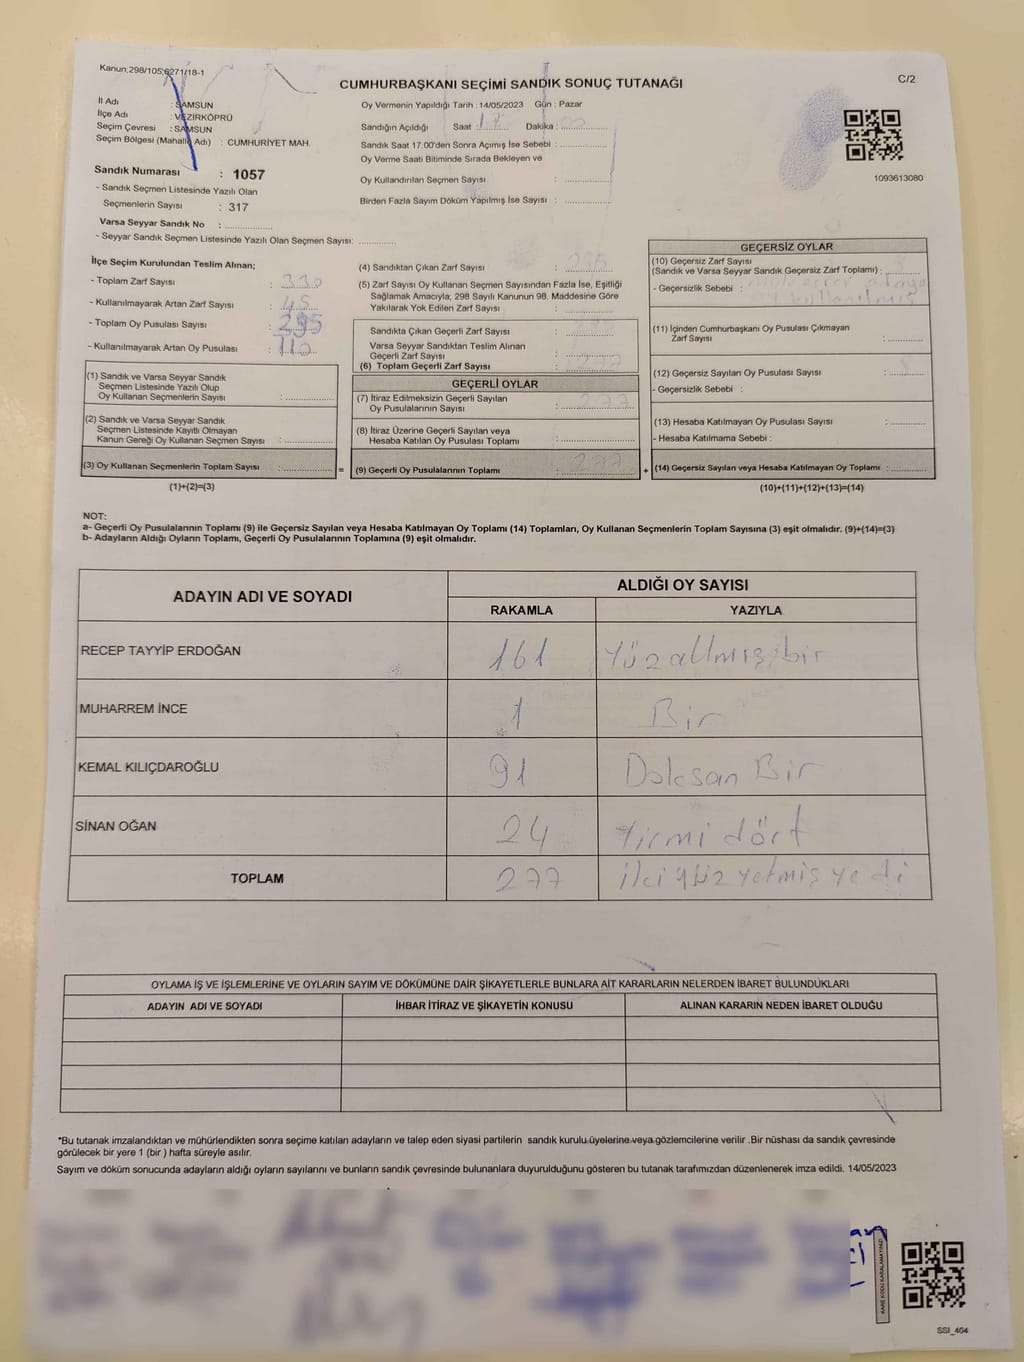 Kanun,298/105;6271/18-1
CUMHURBAŞKANI SEÇİMİ SANDIK SONUÇ TUTANAĞI
C/2
İl Adı : SAMSUN
İlçe Adı : VEZİRKÖPRÜ
Seçim Çevresi : SAMSUN
Seçim Bölgesi (Mahalle Adı) : CUMHURİYET MAH.
Sandık Numarası : 1057
- Sandık Seçmen Listesinde Yazılı Olan
Seçmenlerin Sayısı : 317
Varsa Seyyar Sandık No :
- Seyyar Sandık Seçmen Listesinde Yazılı Olan Seçmen Sayısı:
Oy Vermenin Yapıldığı Tarih : 14/05/2023 Gün : Pazar
Sandığın Açıldığı Saat : 17 Dakika : 00
Sandık Saat 17:00'den Sonra Açımış İse Sebebi :
Oy Verme Saati Bitiminde Sırada Bekleyen ve
Oy Kullandırılan Seçmen Sayısı :
Birden Fazla Sayım Döküm Yapılmış İse Sayısı :
1093613080
İlçe Seçim Kurulundan Teslim Alınan;
- Toplam Zarf Sayısı : 330
- Kullanılmayarak Artan Zarf Sayısı : 45
- Toplam Oy Pusulası Sayısı : 295
- Kullanılmayarak Artan Oy Pusulası : 110
(1) Sandık ve Varsa Seyyar Sandık
Seçmen Listesinde Yazılı Olup
Oy Kullanan Seçmenlerin Sayısı :
(2) Sandık ve Varsa Seyyar Sandık
Seçmen Listesinde Kayıtlı Olmayan
Kanun Gereği Oy Kullanan Seçmen Sayısı :
(3) Oy Kullanan Seçmenlerin Toplam Sayısı :
=
(1)+(2)=(3)
(4) Sandıktan Çıkan Zarf Sayısı :
(5) Zarf Sayısı Oy Kullanan Seçmen Sayısından Fazla İse, Eşitliği
Sağlamak Amacıyla, 298 Sayılı Kanunun 98. Maddesine Göre
Yakılarak Yok Edilen Zarf Sayısı :
Sandıkta Çıkan Geçerli Zarf Sayısı :
Varsa Seyyar Sandıktan Teslim Alınan
Geçerli Zarf Sayısı :
(6) Toplam Geçerli Zarf Sayısı : 277
GEÇERLİ OYLAR
(7) İtiraz Edilmeksizin Geçerli Sayılan
Oy Pusulalarının Sayısı : 277
(8) İtiraz Üzerine Geçerli Sayılan veya
Hesaba Katılan Oy Pusulası Toplamı :
(9) Geçerli Oy Pusulalarının Toplamı : 277
+
GEÇERSİZ OYLAR
(10) Geçersiz Zarf Sayısı
(Sandık ve Varsa Seyyar Sandık Geçersiz Zarf Toplamı) :
- Geçersizlik Sebebi :
(11) İçinden Cumhurbaşkanı Oy Pusulası Çıkmayan
Zarf Sayısı :
(12) Geçersiz Sayılan Oy Pusulası Sayısı :
- Geçersizlik Sebebi :
(13) Hesaba Katılmayan Oy Pusulası Sayısı :
- Hesaba Katılmama Sebebi :
(14) Geçersiz Sayılan veya Hesaba Katılmayan Oy Toplamı :
(10)+(11)+(12)+(13)=(14)
NOT:
a- Geçerli Oy Pusulalarının Toplamı (9) ile Geçersiz Sayılan veya Hesaba Katılmayan Oy Toplamı (14) Toplamları, Oy Kullanan Seçmenlerin Toplam Sayısına (3) eşit olmalıdır. (9)+(14)=(3)
b- Adayların Aldığı Oyların Toplamı, Geçerli Oy Pusulalarının Toplamına (9) eşit olmalıdır.
ADAYIN ADI VE SOYADI
ALDIĞI OY SAYISI
RAKAMLA YAZIYLA
RECEP TAYYİP ERDOĞAN 161 Yüzaltmış bir
MUHARREM İNCE 1 Bir
KEMAL KILIÇDAROĞLU 91 Doksan Bir
SİNAN OĞAN 24 Yirmi dört
TOPLAM 277 iki yüz yetmiş yedi
OYLAMA İŞ VE İŞLEMLERİNE VE OYLARIN SAYIM VE DÖKÜMÜNE DAİR ŞİKAYETLERLE BUNLARA AİT KARARLARIN NELERDEN İBARET BULUNDUKLARI
ADAYIN ADI VE SOYADI İHBAR İTİRAZ VE ŞİKAYETİN KONUSU ALINAN KARARIN NEDEN İBARET OLDUĞU
*Bu tutanak imzalandıktan ve mühürlendikten sonra seçime katılan adayların ve talep eden siyasi partilerin sandık kurulu üyelerine veya gözlemcilerine verilir .Bir nüshası da sandık çevresinde
görülecek bir yere 1 (bir ) hafta süreyle asılır.
Sayım ve döküm sonucunda adayların aldığı oyların sayılarını ve bunların sandık çevresinde bulunanlara duyurulduğunu gösteren bu tutanak tarafımızdan düzenlenerek imza edildi. 14/05/2023
KARE KODU KARALAMAYINIZ!
SSI_404